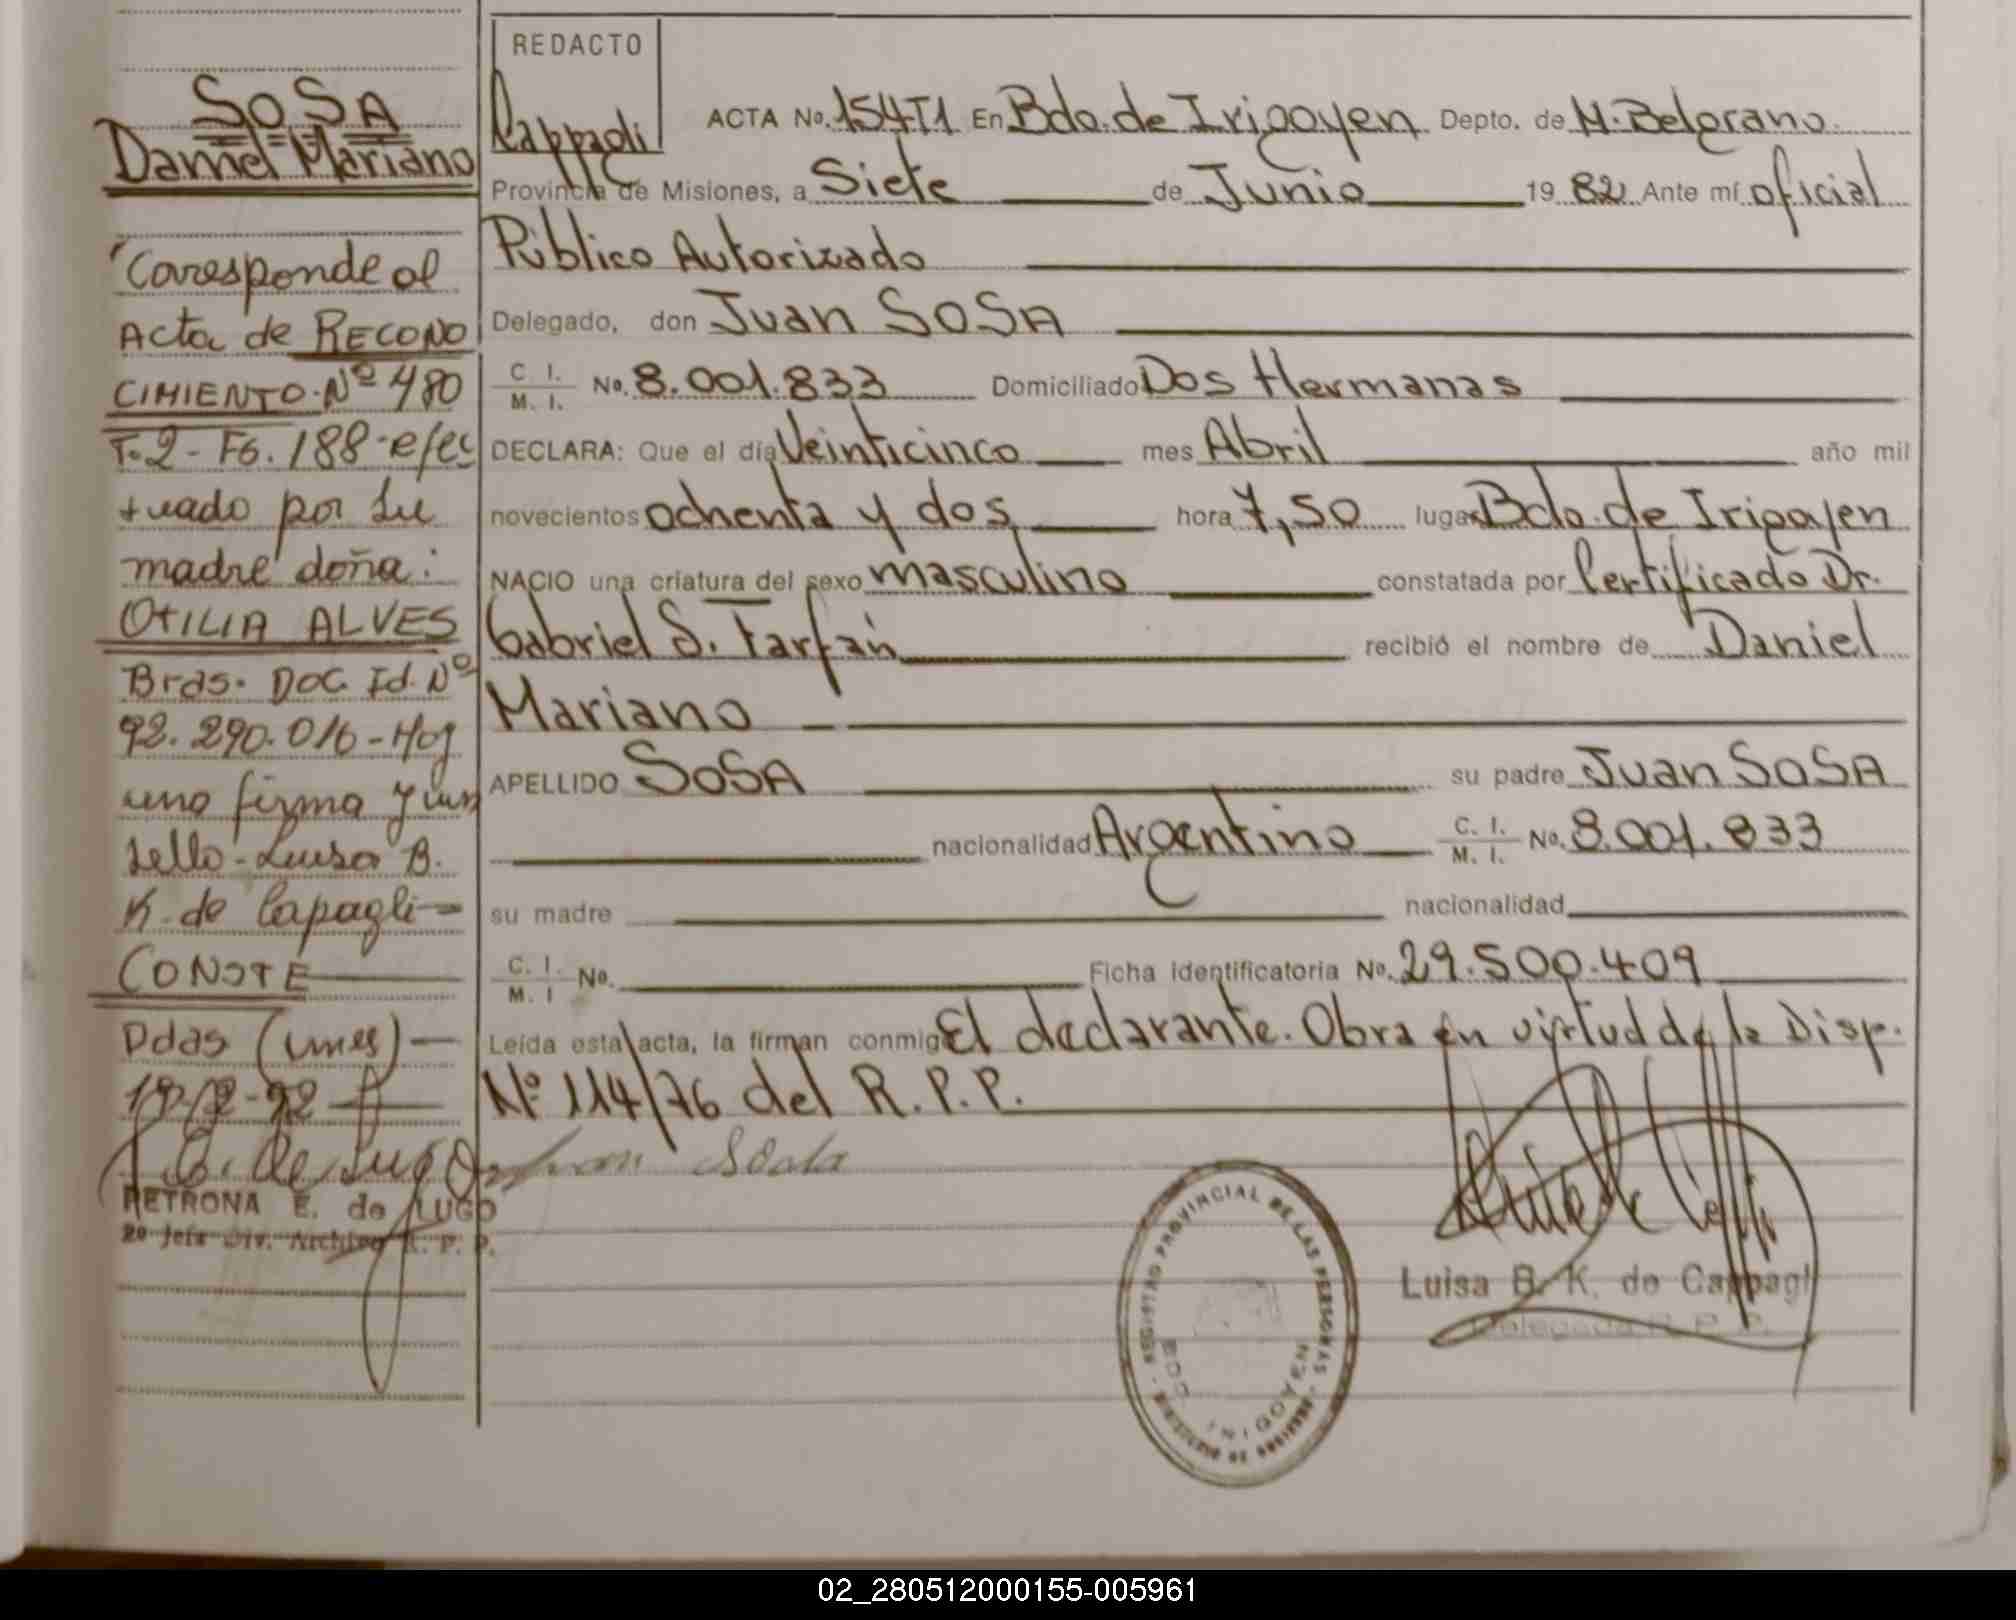 SOSA
Daniel Mariano
Corresponde al
Acta de RECONO
CIMIENTO. Nº 480
T. 2 - Fo. 188 - efec
tuado por su
madre doña:
OTILIA ALVES
Bras. Doc. Id. Nº
92.290.016 - Hoy
una firma y un
sello - Luisa B.
K. de Capagli
CONSTE
Pdas (Mnes)
-92
PETRONA E. de LUGO
2º Jefa Div. Archivo R. P. P.
REDACTO
Cappagli
ACTA No. 154T1 En Bdo. de Irigoyen Depto. de M. Belgrano.
Provincia de Misiones, a Siete de Junio 19 82 Ante mí oficial
Público Autorizado
Delegado, don Juan SOSA
C. I. / M. I. No. 8.001.833 Domiciliado Dos Hermanas
DECLARA: Que el día Veinticinco mes Abril año mil
novecientos ochenta y dos hora 7,50 lugar Bdo. de Irigoyen
NACIO una criatura del sexo masculino constatada por Certificado Dr.
Gabriel S. Farfán recibió el nombre de Daniel
Mariano
APELLIDO SOSA su padre Juan SOSA
nacionalidad Argentino C. I. / M. I. No. 8.001.833
su madre nacionalidad
C. I. / M. I No. Ficha identificatoria No. 29.500.409
Leída esta acta, la firman conmigo El declarante. Obra en virtud de la Disp.
Nº 114/76 del R. P. P.
REGISTRO PROVINCIAL DE LAS PERSONAS
BDO. IRIGOYEN
Luisa B. K. de Cappagli
Delegada R. P. P.
02_280512000155-005961